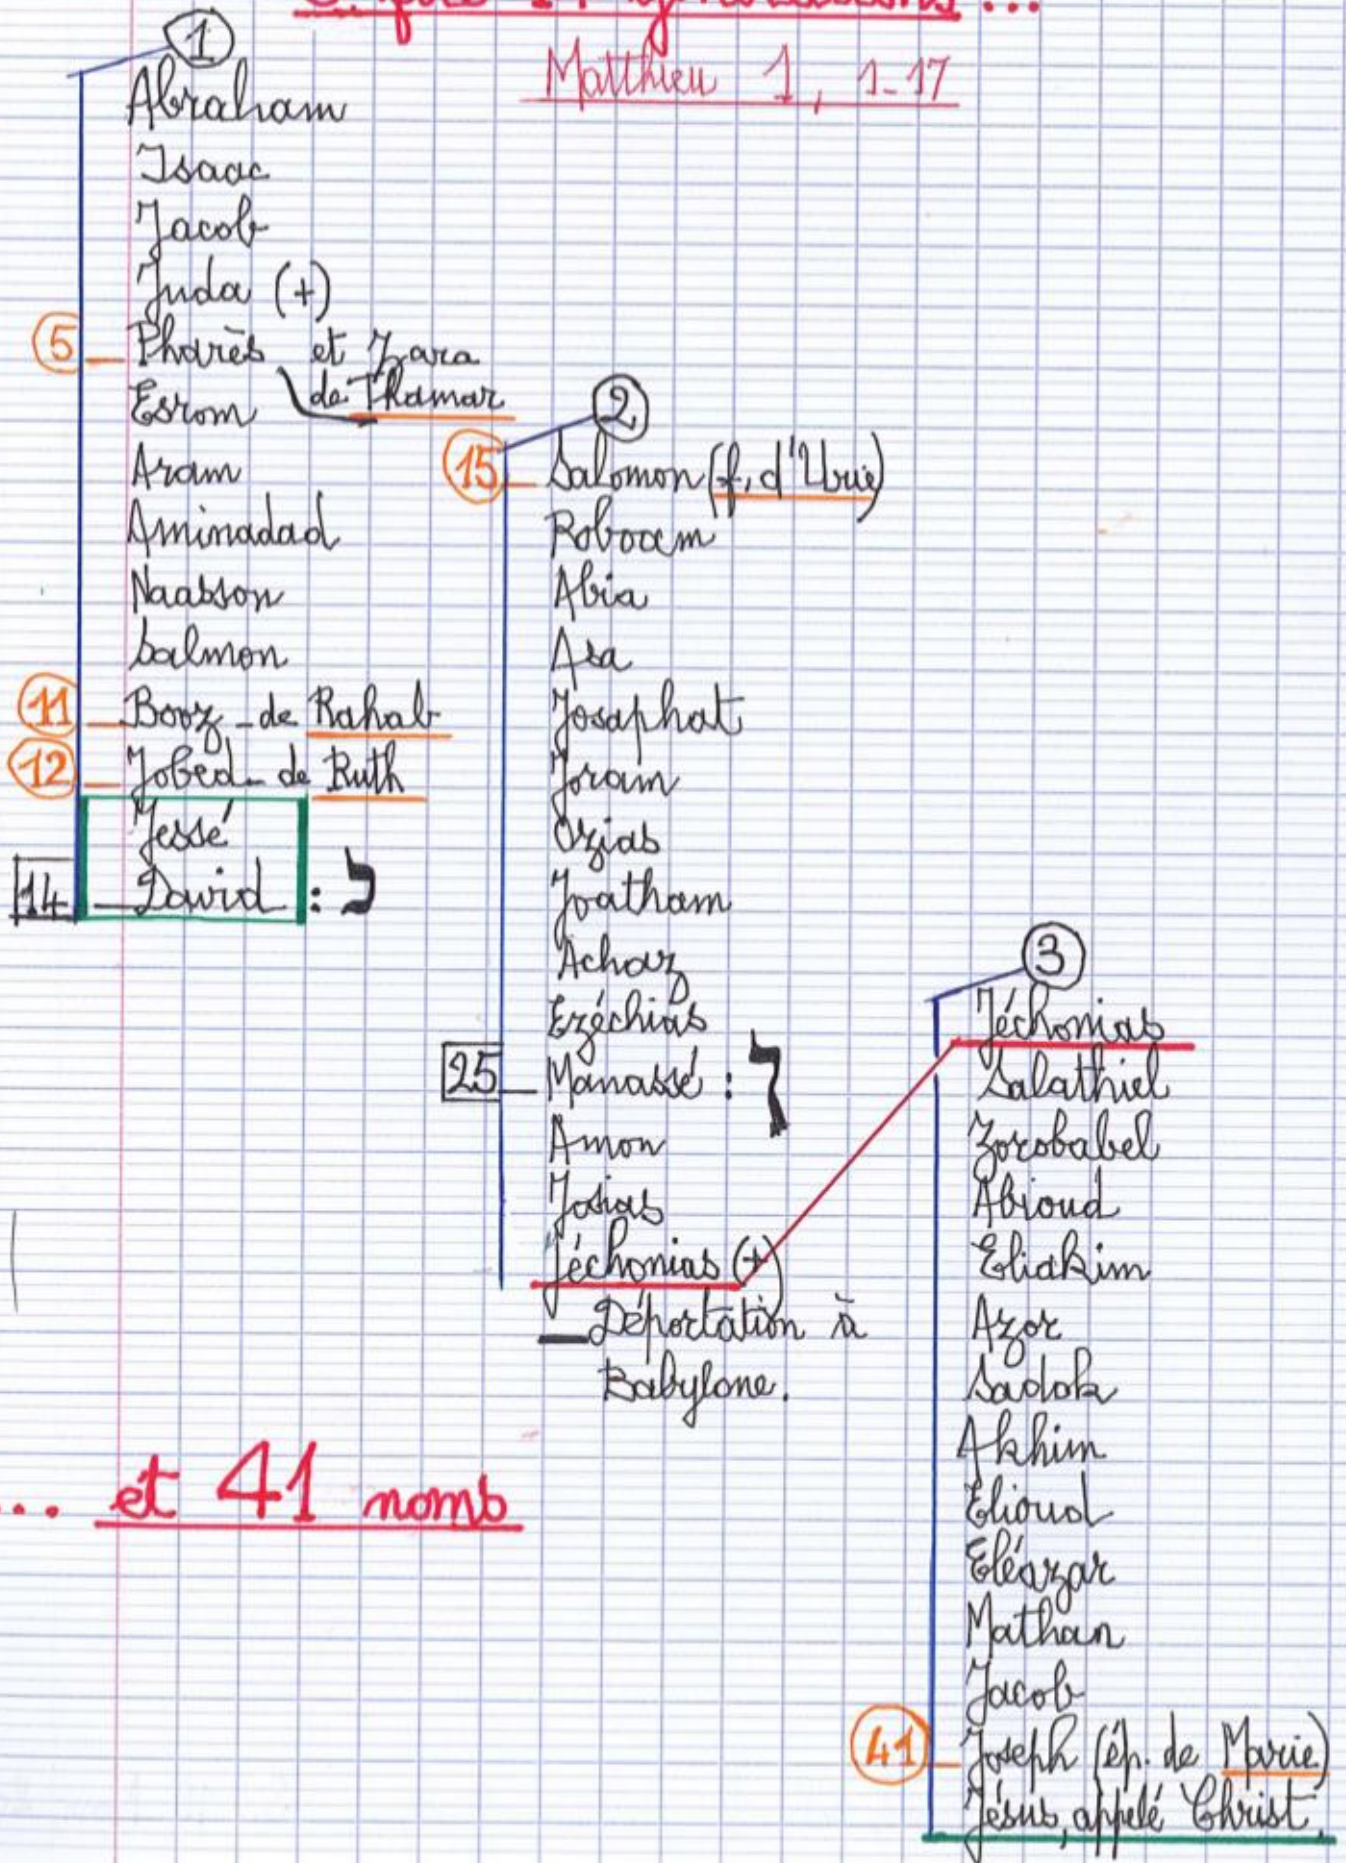 3 fois 14 générations ...
Matthieu 1, 1-17
1
Abraham
Isaac
Jacob
Juda (+)
5 _ Pharès et Zara
de Thamar
Esrom
Aram
Aminadad
Naasson
Salmon
11 _ Booz - de Rahab
12 _ Jobed - de Ruth
Jessé
14 _ David : נ
2
15 _ Salomon (f. d'Urie)
Roboam
Abia
Asa
Josaphat
Joram
Ozias
Joatham
Achaz
Ezéchias
25 _ Manassé : ן
Amon
Josias
Jéchonias (+)
_ Déportation à
Babylone.
3
Jéchonias
Salathiel
Zorobabel
Abioud
Éliakim
Azor
Sadok
Akhim
Elioud
Eléazar
Mathan
Jacob
41 _ Joseph (ép. de Marie)
Jésus, appelé Christ.
... et 41 noms